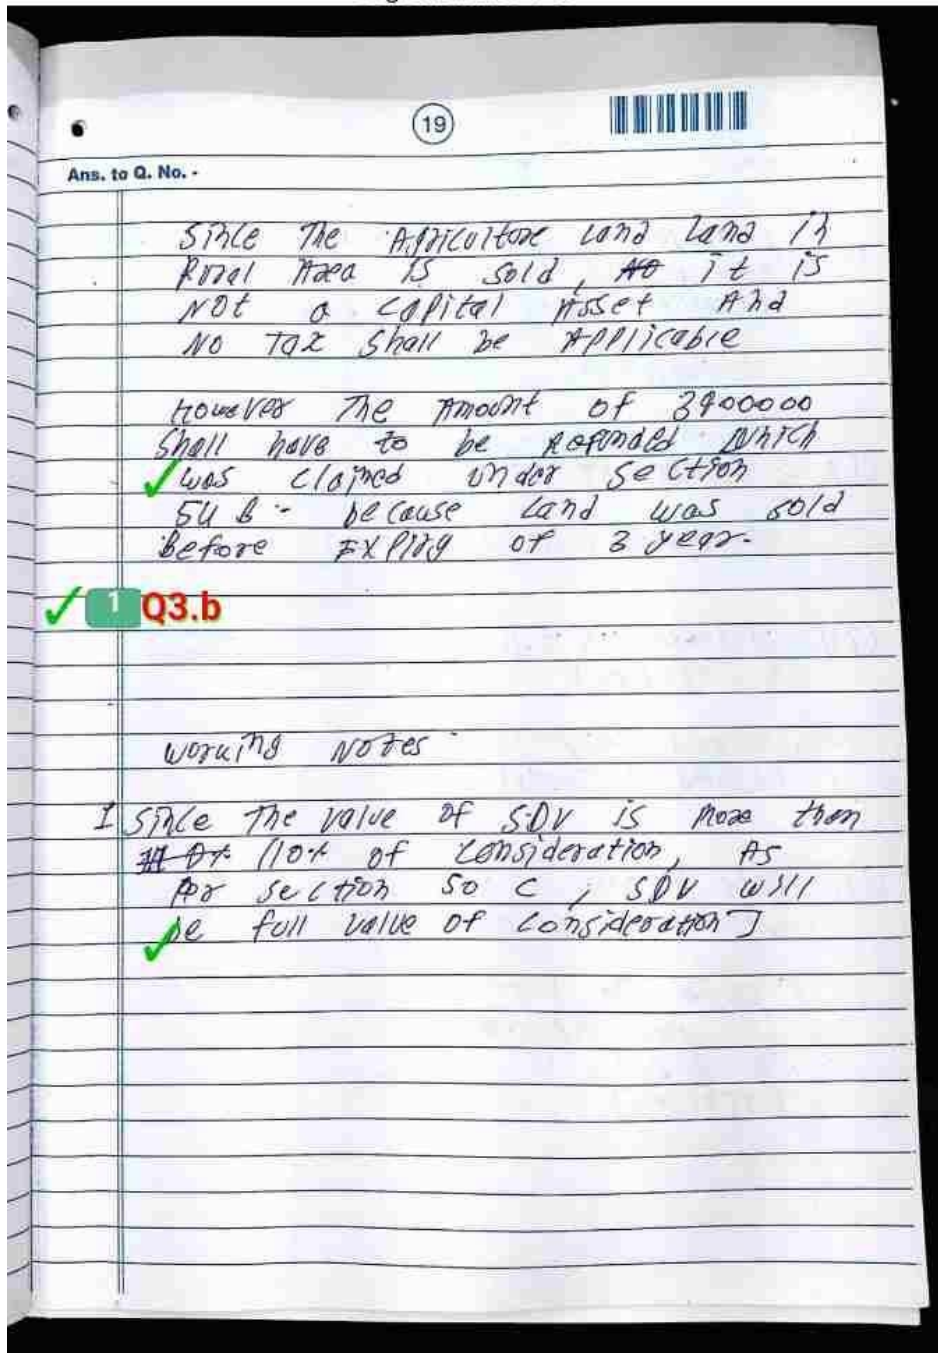 19
Ans. to Q. No. -
Since The Agricultore Land Land in
Rural Area is sold, it is
Not a capital Asset And
No Tax shall be Applicable
However The Amount of 3900000
shall have to be Refunded which
was claimed under section
54 B - because Land was sold
Before Expiry of 3 year.
1 Q3.b
Working Notes
I Since The value of SDV is more then
110% of Consideration, As
Per section 50 C, SDV will
be full value of consideration]